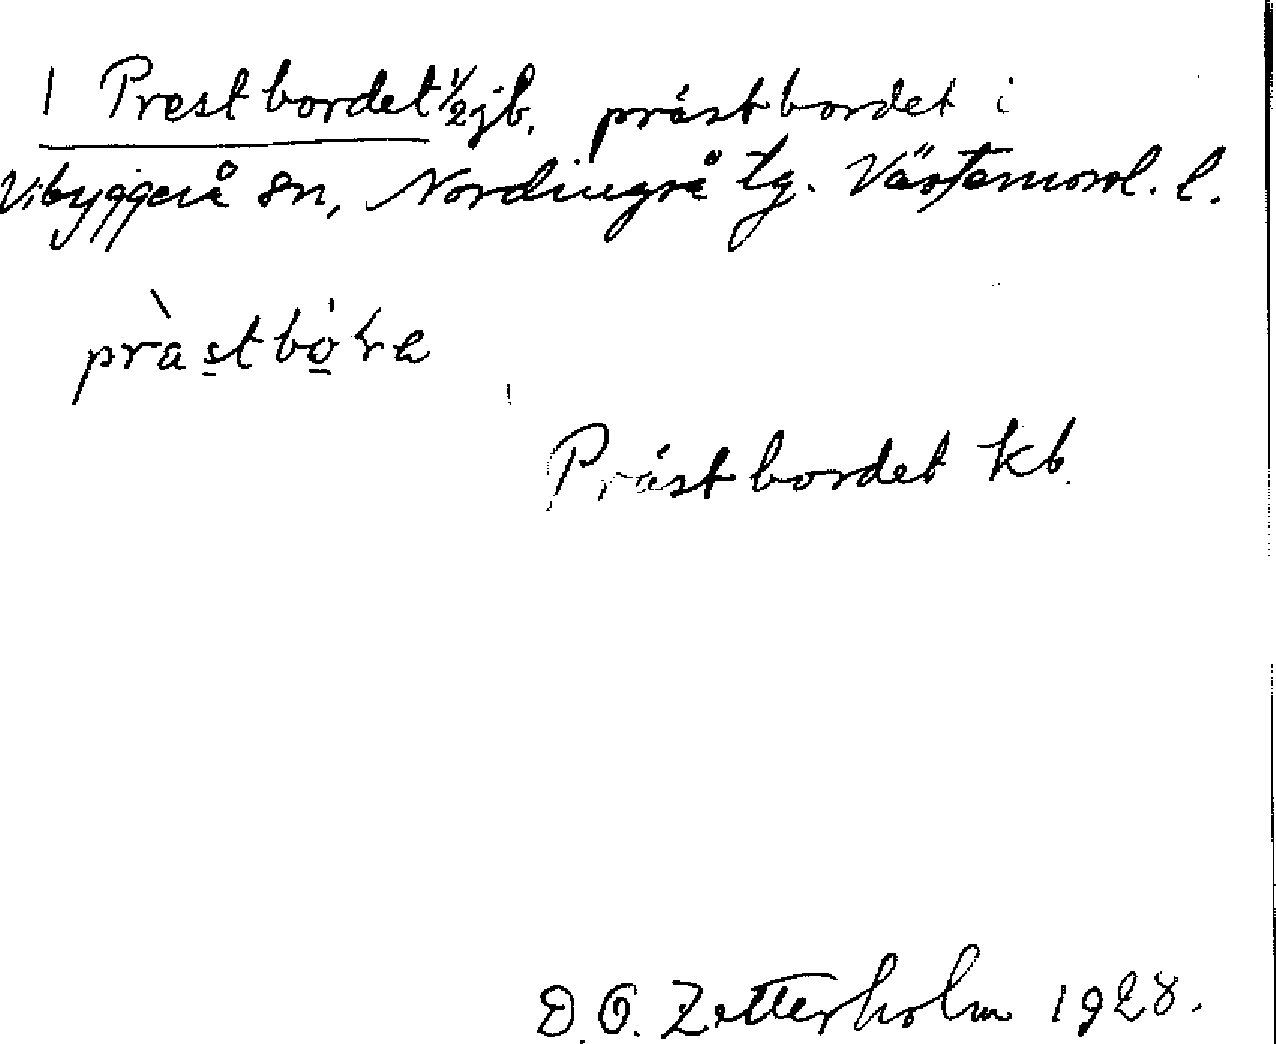 1 Prestbordet 1/2 jb. prästbordet i
Vibyggerå sn, Nordingrå tg. Västernorrl. l.
Prästbordet kb.
D. O. Zetterholm 1928.